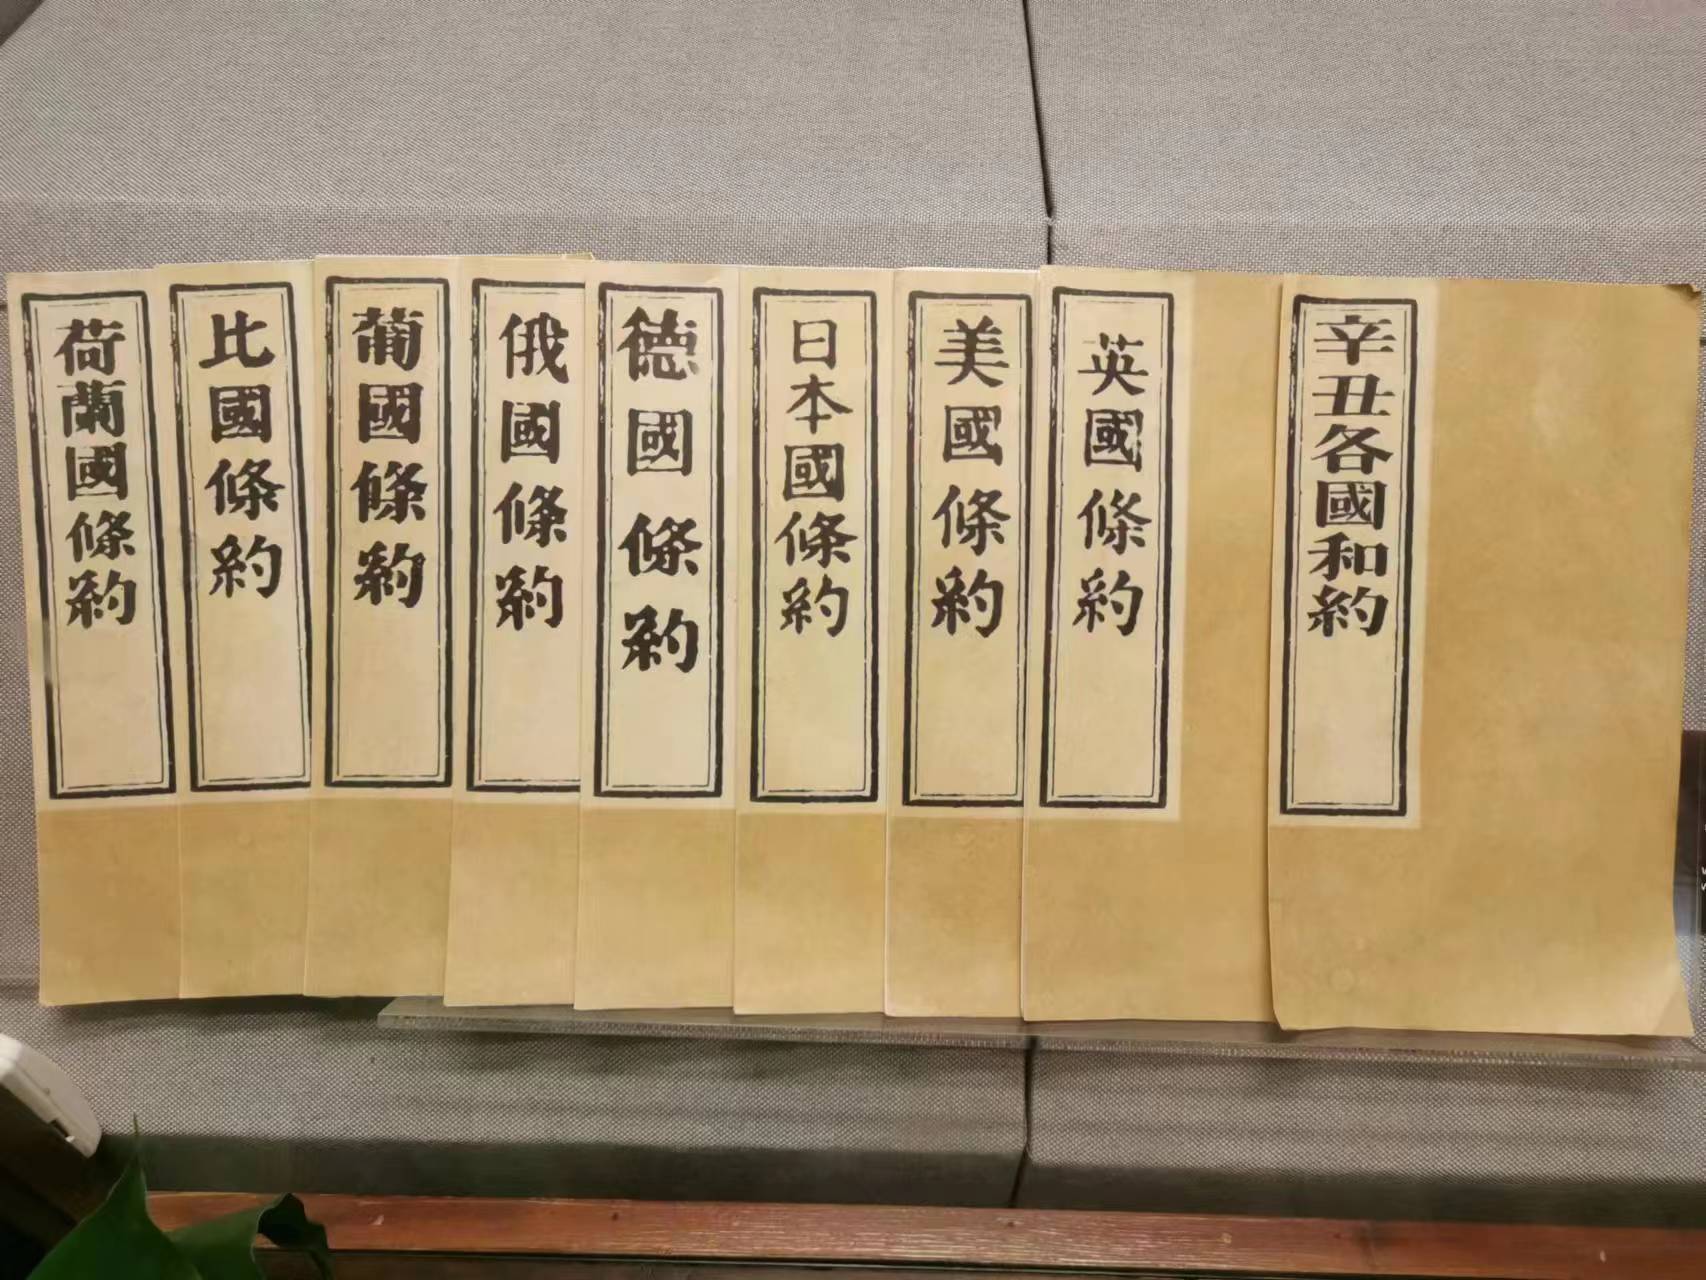 辛丑各國和約
英國條約
美國條約
日本國條約
德國條約
俄國條約
葡國條約
比國條約
荷蘭國條約